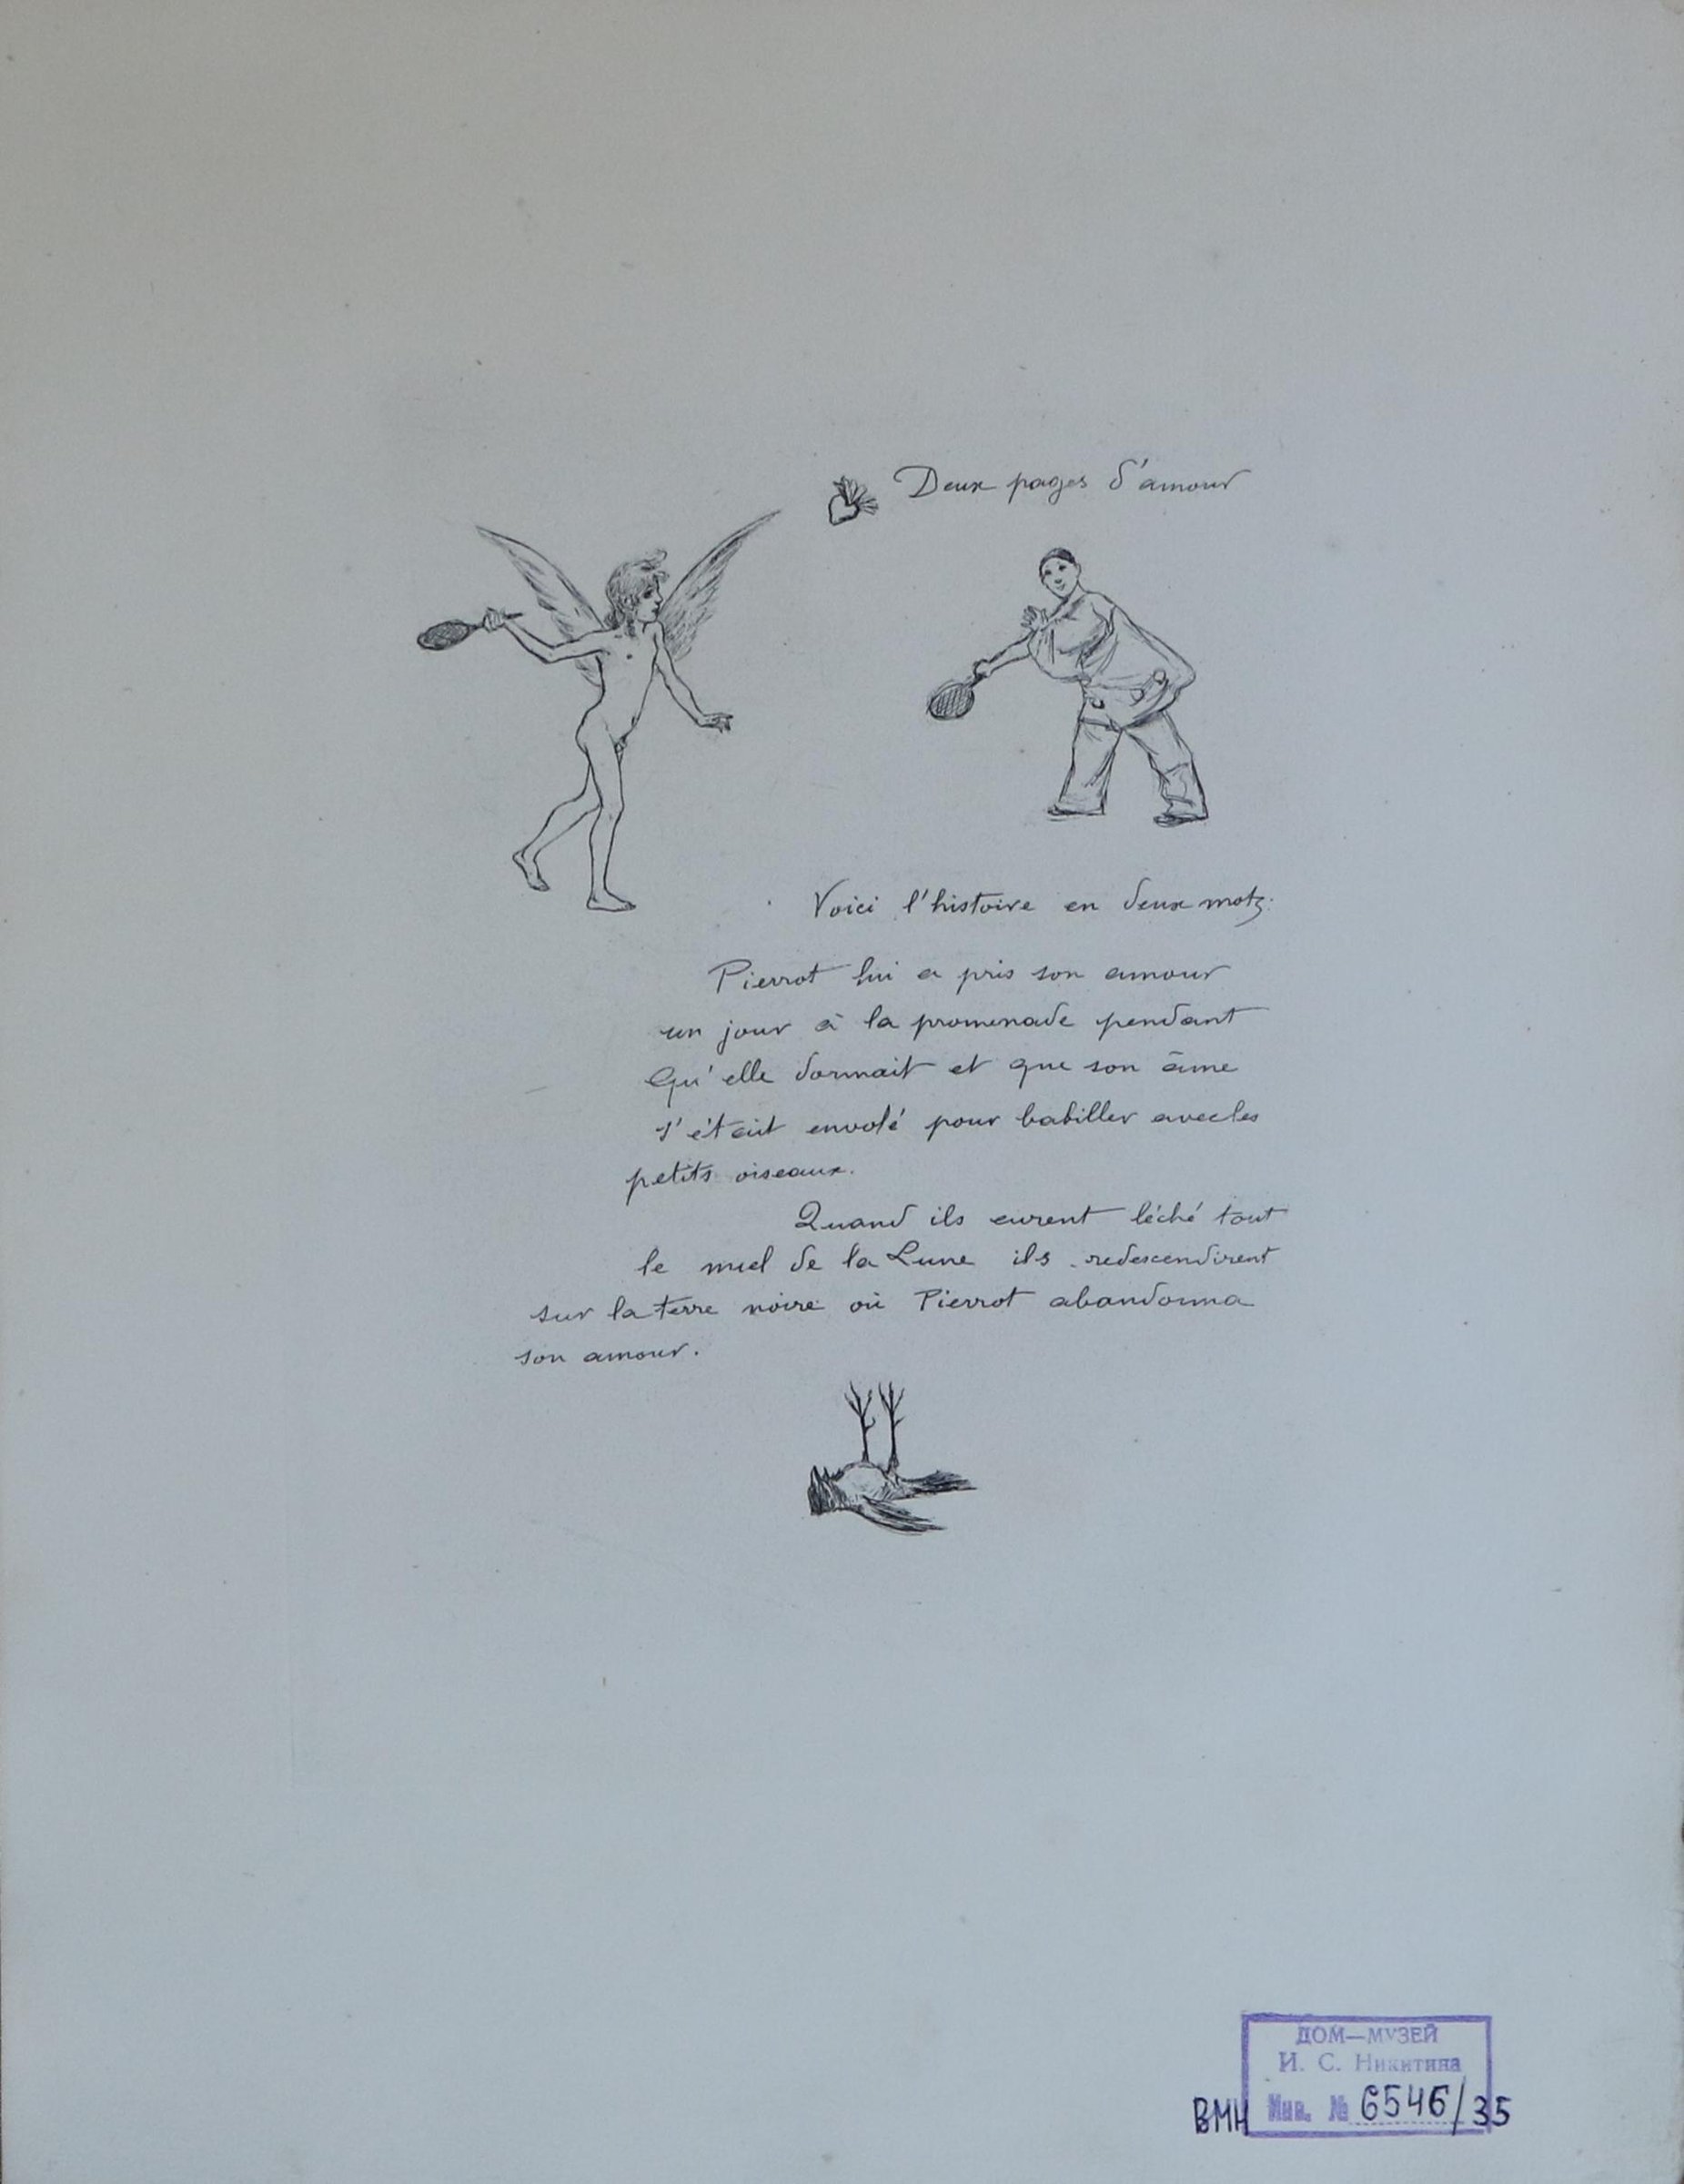 Deux pages d'amour
Voici l'histoire en deux mots:
Pierrot lui a pris son amour
un jour à la promenade pendant
Qu'elle dormait et que son âme
s'était envolé pour babiller avec les
petits oiseaux.
Quand ils eurent léché tout
le miel de la Lune ils redescendirent
sur la terre noire où Pierrot abandonna
son amour.
ДОМ—МУЗЕЙ
И. С. Никитина
ВМН Инв. № 6546/35